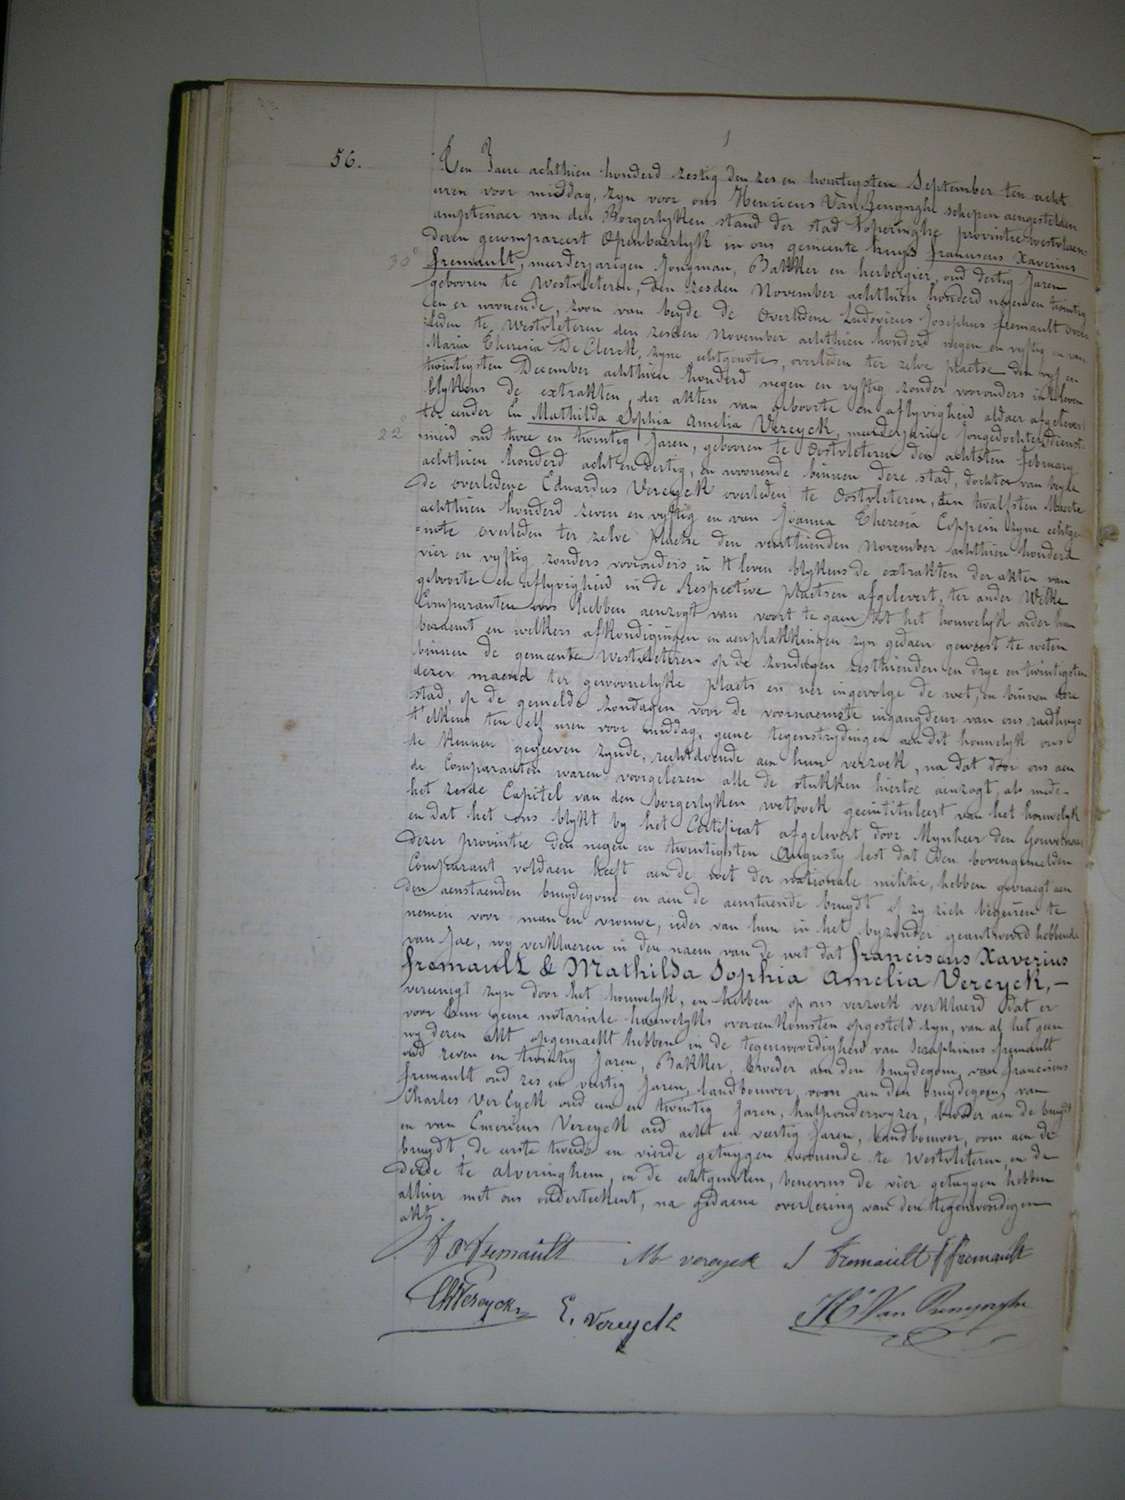 56.
Den Jaere achthien honderd zestig den zes en twintigsten September ten acht
uren voor middag, zyn voor ons Henricus Van Renynghe schepen aengestelden
amptenaer van den Borgerlyken stand der stad Poperinghe provintie westvlaen-
deren gecompareert Openbaerlyk in ons gemeente huys franciscus Xaverius
30
fremault, meerderjarigen Jongman, Bakker en herbergier, oud dertig Jaren
gebooren te Westvleteren, den zesden November achthien honderd negen en twintig
en er woonende, zoon van beyde de Overledene Ludovicus Josephus fremault over-
leden te Westvleteren den zesden November achthien honderd negen en vyftig en van
Maria Theresia De Clerck, zyne echtgenote, overleden ter zelve plaetse den vyf en
twintigsten December achthien honderd negen en vyftig zonder voorouders in't leven
blykens de extrakten der akten van geboorte en aflyvigheid aldaer afgelevert
ter eender En Mathilda Sophia Amelia Vereyck, meerderjarige jongedochter, dienst-
22
meid oud twee en twintig Jaren, gebooren te Oostvleteren den achtsten february
achthien honderd acht en dertig, en woonende binnen deze stad, dochter van beyde
de overledene Eduardus Vereyck overleden te Oostvleteren, den twalfsten Maerte
achthien honderd zeven en vyftig en van Joanna Theresia Coppein zyne echtge-
note overleden ter zelve plaetse den veerthienden November achthien honderd
vier en vyftig zonders voorouders in 't leven blykens de extrakten der akten van
geboorte en aflyvigheid in de Respective plaetsen afgelevert, ter ander Welke
Comparanten ons hebben aenzogt van voort te gaen tot het houwelyk onder hun
beraemt en welkers afkondigingen en aenplakkingen zyn gedaen geweest te weten
binnen de gemeente Westvleteren op de zondagen zesthienden en drye en twintigsten
dezer maend ter gewoonelyke plaets en uer ingevolge de wet, en binnen deze
stad, op de gemelde zondagen voor de voornaemste ingangdeur van ons raedhuys
t'elkens ten elf uren voor middag, geene tegenstrydingen aen dit houwelyk ons
te kennen gegeeven zynde, rechtdoende aen hun verzoek, na dat door ons aen
de Comparanten waren voorgelezen alle de stukken hiertoe aenzogt, als mede
het zesde Capitel van den borgerlyken wetboek geintituleert van het houwelyk
en dat het ons blykt by het Certificat afgelevert door Mynheer den Gouverneur
dezer provintie den negen en twintigsten Augusty lest dat den bovengemelden
Comparant voldaen heeft aen de wet der nationale militie, hebben gevraegt aen
den aenstaenden bruydegom en aen de aenstaende bruydt of zy zich begeiren te
nemen voor man en vrouwe, ieder van hun in het byzonder geantwoord hebbende
van Jae, wy verklaeren in den naem van de wet dat franciscus Xaverius
fremault & Mathilda Sophia Amelia Vereyck,—
vereenigt zyn door het houwelyk, en hebben op ons verzoek verklaerd dat er
voor hun geene notariale houwelyks overeenkomsten opgesteld zyn, van al het geen
wy dezen akt opgemaekt hebben in de tegenwoordigheid van Seraphinus fremault
oud zeven en twintig Jaren, Bakker, broeder aen den bruydegom, van franciscus
fremault oud zes en veertig Jaren, landbouwer, oom aen den bruydegom, van
Charles Vereyck oud een en twintig Jaren, hulponderwyzer, broeder aen de bruydt
en van Emericus Vereyck oud acht en veertig Jaren, Landbouwer, oom aen de
bruydt, de eerste tweede en vierde getuygen woonende te Westvleteren, en de
derde te alveringhem, en de echtgenoten, benevens de vier getuygen hebben
alhier met ons onderteekent, na gedaene overlezing van den tegenwoordigen
akt.
Fremault M vereyck S Fremault F fremault
Ch Vereyck E. Vereyck H. Van Renynghe